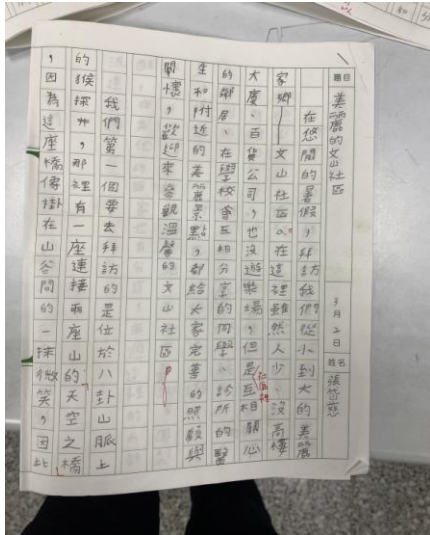 題目 美麗的文山社區 3月2日 姓名
在悠閒的暑假,拜訪我們從小到大的美麗
家鄉——文山社區。在這裡雖然人少、沒高樓
大廈、百貨公司,也沒遊樂場,但是互相關心
的鄰居、在學校會互相分享的同學、診所的醫
生和附近的美麗景點,都給大家完善的照顧與
關懷,歡迎來參觀溫馨的文山社區
我們第一個要去拜訪的是位於八卦山脈上
的猴探井,那裡有一座連接兩座山的天空之橋
,因為這座橋像掛在山谷間的一抹微笑,因此